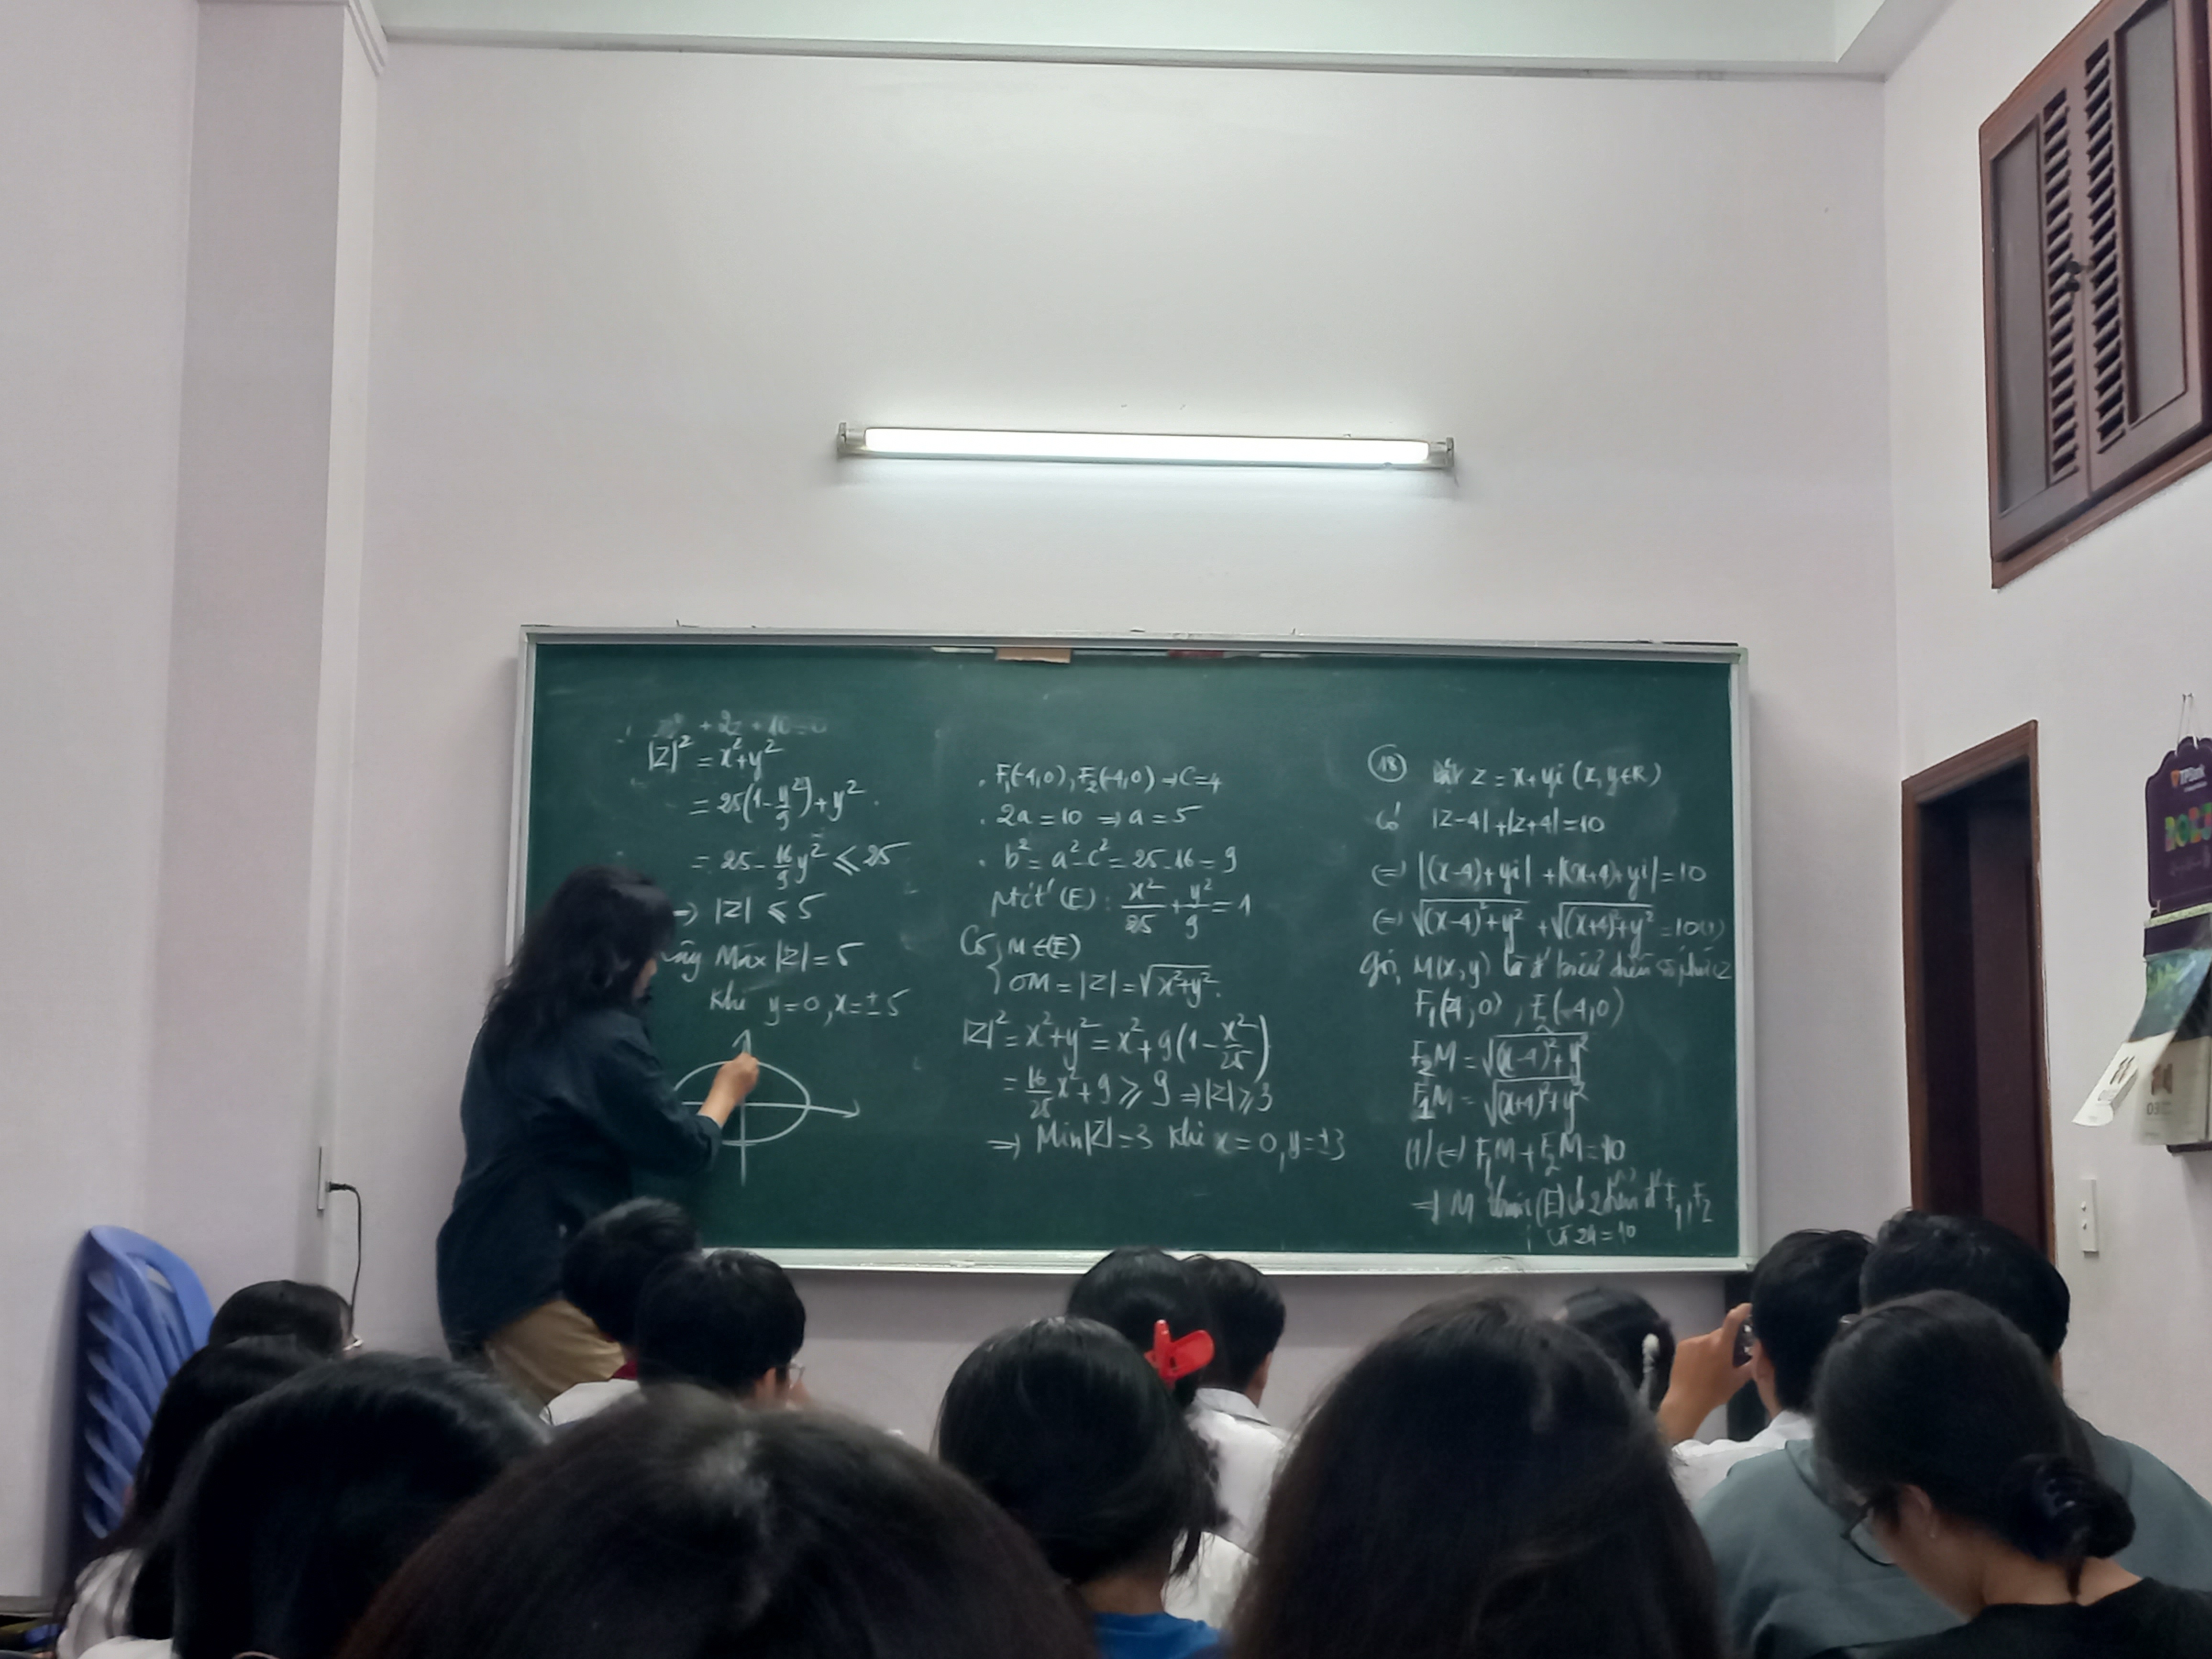 z² + 2z + 10 = 0
|Z|² = x² + y²
= 25(1 - y²/9) + y².
= 25 - 16/9 y² ≤ 25
=> |Z| ≤ 5
Max |Z| = 5
khi y = 0, x = ± 5
. F₁(-4,0), F₂(-4,0) → C = 4
. 2a = 10 => a = 5
. b² = a² - c² = 25 - 16 = 9
ptct (E) : x²/25 + y²/9 = 1
Có { M ∈ (E)
OM = |Z| = √(x² + y²).
|Z|² = x² + y² = x² + 9(1 - x²/25)
= 16/25 x² + 9 ≥ 9 => |Z| ≥ 3
=> Min|Z| = 3 khi x = 0, y = ±3
(18) Đặt z = x + yi (x, y ∈ R)
Có |z - 4| + |z + 4| = 10
(=) |(x-4) + yi| + |(x+4) + yi| = 10
(=) √((x-4)² + y²) + √((x+4)² + y²) = 10 (1)
Gọi M(x, y) là đ' biểu diễn số phức z
F₁(4, 0), F₂(-4, 0)
F₂M = √((x-4)² + y²)
F₁M = √((x+4)² + y²)
(1) (=) F₁M + F₂M = 10
=> M thuộc (E) có 2 tiêu đ' F₁, F₂
có 2a = 10
TPBank